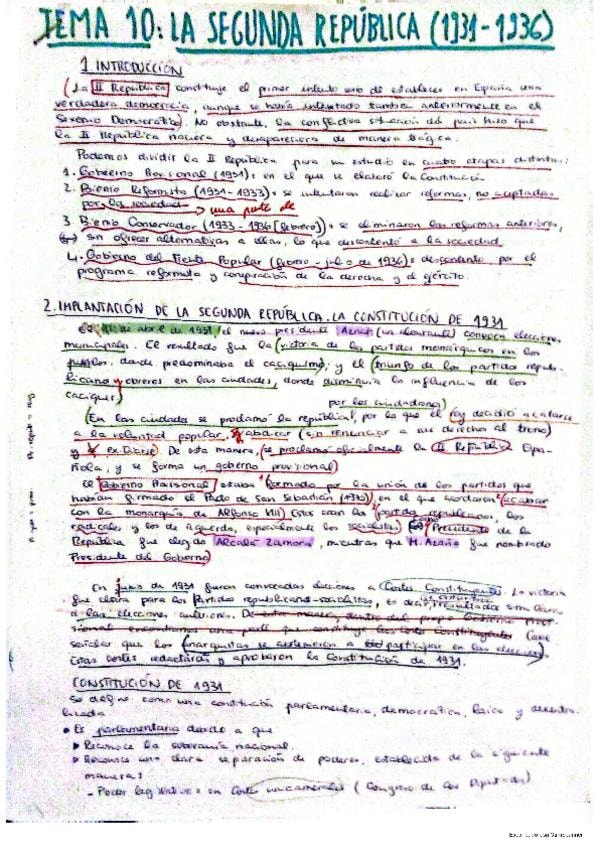 TEMA 10: LA SEGUNDA REPÚBLICA (1931-1936)
1. INTRODUCCIÓN
(La II República constituye el primer intento serio de establecer en España una
verdadera democracia, aunque se había intentado también anteriormente en el
Sexenio Democrático). No obstante, la conflictiva situación del país hizo que
la II República naciera y desapareciera de manera trágica.
Podemos dividir la II República para su estudio en cuatro etapas distintas:
1. Gobierno Provisional (1931): en el que se elaboró la Constitución
2. Bienio Reformista (1931-1933): se intentaron realizar reformas, no aceptadas
por la sociedad → una parte de
3. Bienio Conservador (1933-1936 [febrero]): se eliminaron las reformas anteriores,
sin ofrecer alternativas a ellas, lo que descontentó a la sociedad
4. Gobierno del Frente Popular (febrero - julio de 1936): descontento por el
programa reformista y conspiración de la derecha y el ejército.
2. IMPLANTACIÓN DE LA SEGUNDA REPÚBLICA. LA CONSTITUCIÓN DE 1931
de abril de 1931, el nuevo presidente Aznar (un almirante) convoca elecciones
municipales. El resultado fue la (victoria de los partidos monárquicos en los
pueblos, donde predominaba el caciquismo, y el triunfo de los partidos repu-
blicanos y obreros en las ciudades, donde disminuía la influencia de los
caciques)
por los ciudadanos)
(En las ciudades se proclamó la república), por lo que el rey decidió acatarse
a la voluntad popular, abdicar (sin renunciar a su derecho al trono)
y exiliarse. De esta manera, (se proclamó oficialmente la II República Espa-
ñola, y se forma un gobierno provisional)
El Gobierno Provisional estaba (formado por la unión de los partidos que
habían firmado el Pacto de San Sebastián (1930), en el que acordaron (acabar
con la monarquía de Alfonso XIII) (estos eran los (partidos republicanos, los
radicales y los de izquierda, especialmente los socialistas) Presidente de la
República fue elegido Alcalá Zamora, mientras que M. Azaña fue nombrado
Presidente del Gobierno
En junio de 1931 fueron convocadas elecciones a Cortes Constituyentes. La victoria
fue clara para los Partidos republicano-socialistas, es decir, resultados similares
a las elecciones anteriores. De esta manera, dentro del propio Gobierno Provi-
sional encontramos una parte que constituye las Cortes Constituyentes Cabe
señalar que los (anarquistas se abstuvieron a participar en las elecciones).
Estas cortes redactarán y aprobaron la Constitución de 1931.
CONSTITUCIÓN DE 1931
Se define como una constitución parlamentaria, democrática, laica y descentra-
lizada
• Es parlamentaria debido a que
▸ Reconoce la soberanía nacional.
▸ Reconoce una clara separación de poderes, establecida de la siguiente
manera:
- Poder legislativo: en Cortes unicamerales (Congreso de los Diputados)